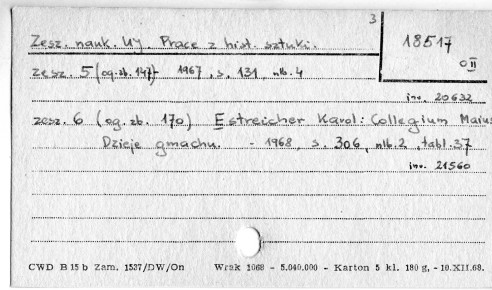 3
Zesz. nauk. UJ. Prace z hist. sztuki.
18517
OII
zesz. 5 (og. zb. 147) - 1967, s. 131 nlb. 4
inv. 20632
zesz. 6 (og. zb. 170) Estreicher Karol: Collegium Maius
Dzieje gmachu. - 1968, s. 306, nlb. 2, tabl. 37
inv. 21560
CWD B 15 b Zam. 1537/DW/On Wrak 1068 - 5.040.000 - Karton 5 kl. 180 g, - 10.XII.68.